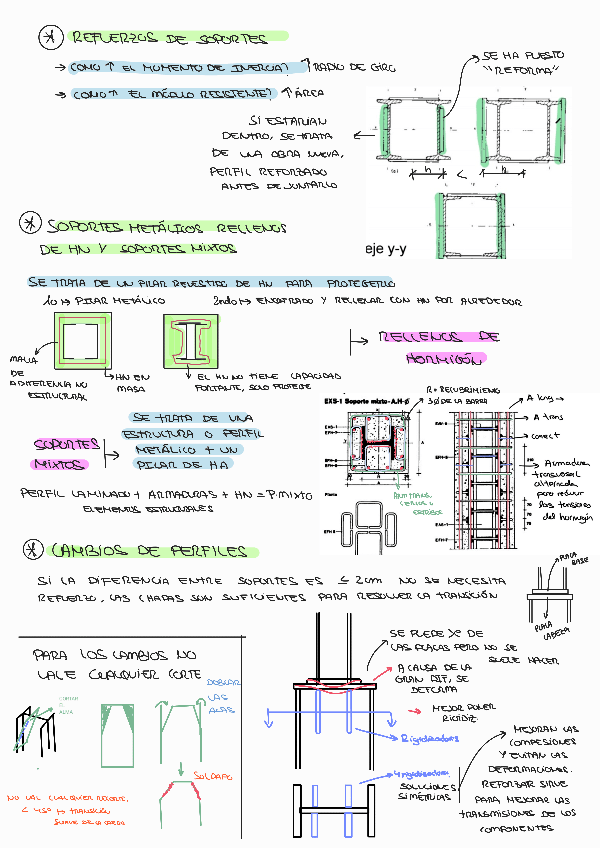 * REFUERZOS DE SOPORTES
→ COMO ↑ EL MOMENTO DE INERCIA? ↑ RADIO DE GIRO
→ COMO ↑ EL MÓDULO RESISTENTE? ↑ ÁREA
SE HA PUESTO
"REFORMA"
SI ESTARIAN
DENTRO, SE TRATA
DE UNA OBRA NUEVA,
PERFIL REFORZADO
ANTES DE JUNTARLO
h < h
eje y-y
* SOPORTES METÁLICOS RELLENOS
DE HN Y SOPORTES MIXTOS
SE TRATA DE UN PILAR REVESTIDO DE HN PARA PROTEGERLO
1o ↦ PILAR METÁLICO
2ndo ↦ ENCOFRADO Y RELLENAR CON HN POR ALREDEDOR
MALLA
DE
ADHERENCIA NO
ESTRUCTURAL
HN EN
MASA
EL HN NO TIENE CAPACIDAD
PORTANTE, SOLO PROTEGE
RELLENOS DE
HORMIGÓN
SOPORTES
MIXTOS
SE TRATA DE UNA
ESTRUCTURA O PERFIL
METÁLICO + UN
PILAR DE HA
PERFIL LAMINADO + ARMADURAS + HN = P. MIXTO
ELEMENTOS ESTRUCTURALES
R = RECUBRIMIENO
3Ø DE LA BARRA
EXS-1 Soporte mixto-A.H-Ø
Planta
ARM TRANS
CERCOS O
ESTRIBOS
A long →
A trans
conect
Armadura
transversal
alternada
para reducir
las tensiones
del hormigón
* CAMBIOS DE PERFILES
SI LA DIFERENCIA ENTRE SOPORTES ES ≤ 2cm NO SE NECESITA
REFUERZO, LAS CHAPAS SON SUFICIENTES PARA RESOLVER LA TRANSICIÓN
PLACA
BASE
PLACA
CABEZA
PARA LOS CAMBIOS NO
VALE CUALQUIER CORTE
CORTAR
EL
ALMA
DOBLAR
LAS
ALAS
SOLDADO
NO VAL CUALQUIER RECORTE,
< 45º ↦ TRANSICIÓN
SUAVE DE LA CARGA
SE PUEDE DE
LAS PLACAS PERO NO SE
SUELE HACER
A CAUSA DE LA
GRAN DIF, SE
DEFORMA
→ MEJOR PONER
RIGIDIZ.
Rigidizadores
4 rigidizadores
SOLUCIONES
SIMÉTRICAS
MEJORAN LAS
COMPRESIONES
Y EVITAN LAS
DEFORMACIONES.
REFORZAR SIRVE
PARA MEJORAR LAS
TRANSMISIONES DE LOS
COMPONENTES